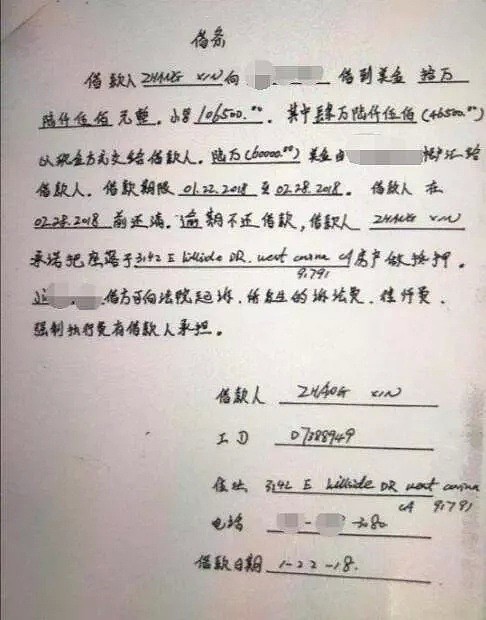 借条
借款人 ZHANG XIN 向 借到美金 拾万
陆仟伍佰 元整。小写 106500.00。其中 肆万陆仟伍佰 (46500.00)
以现金方式交给借款人。陆万(60000.00)美金由 帐户汇给
借款人。借款期限 01.22.2018 至 02.28.2018。借款人 在
02.28.2018 前还清。逾期不还借款,借款人 ZHANG XIN
承诺把座落于 3142 E hillside DR. west covina CA 房产做抵押。
91791
借方可向法院起诉,所发生的诉讼费、律师费、
强制执行费有借款人承担。
借款人 ZHANG XIN
ID D7388949
住址 3142 E hillside DR west covina
CA 91791
电话 - -3080
借款日期 1-22-18.